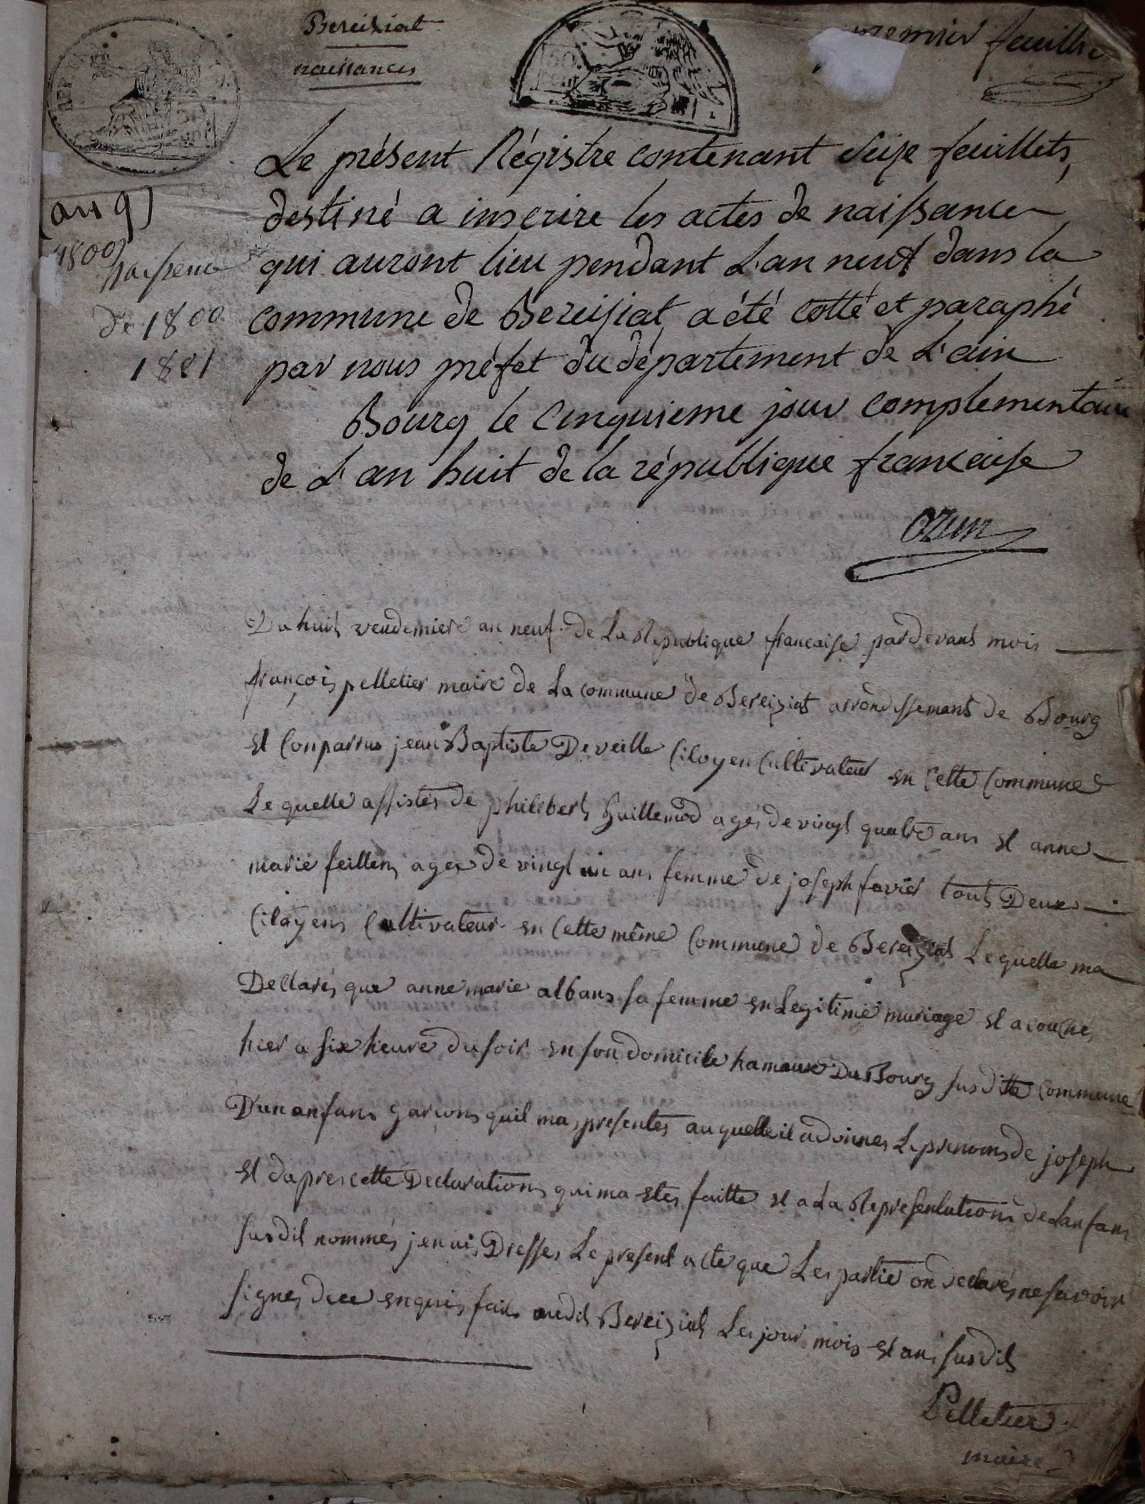 Bereiziat
naissances
premier feuillet
Le présent Régistre contenant seize feuillets,
destiné a inscrire les actes de naissance
qui auront lieu pendant L'an neuf dans la
commune de Bereiziat, a été cotté et paraphé
par nous préfet du département de L'ain
Bourg le Cinquieme jour complementaire
de L'an huit de la république francaise
Ozun
(an 9)
1800
Naissence
de 1800
1801
Du huit vendemiere an neuf de La Republique francaise pardevant mois
françois pelletier maire de La commune de Bereiziat arrondissement de Bourg
est Conparrus jean Baptiste Deveille Citoyen Cultivateur en Cette Commune
Le quelle assistés de philibert Guillemod ages de vingt quatre ans et anne
marie feillens agee de vingt un ans femme de joseph favier tout Deux
Citoyens Cultivateur en Cette même Commune de Bereiziat Lequelle ma
Declarés que anne marie albans sa femme en Legitime mariage est acouché
hier a six heure du soir en son domicile hamaux Du Bourg susditte commune
Dun anfans garcons quil ma presentes au quelle il a donnes Le prenoms de joseph
et dapres cette Declarations qui ma etes faitte et a La Representations de Lanfans
susdit nommés jen ais Dresses Le present acte que Les partie on declares ne savoir
signes de ce enquis fait audit Bereiziat Les jour mois et ans susdit
Pelletier
maire